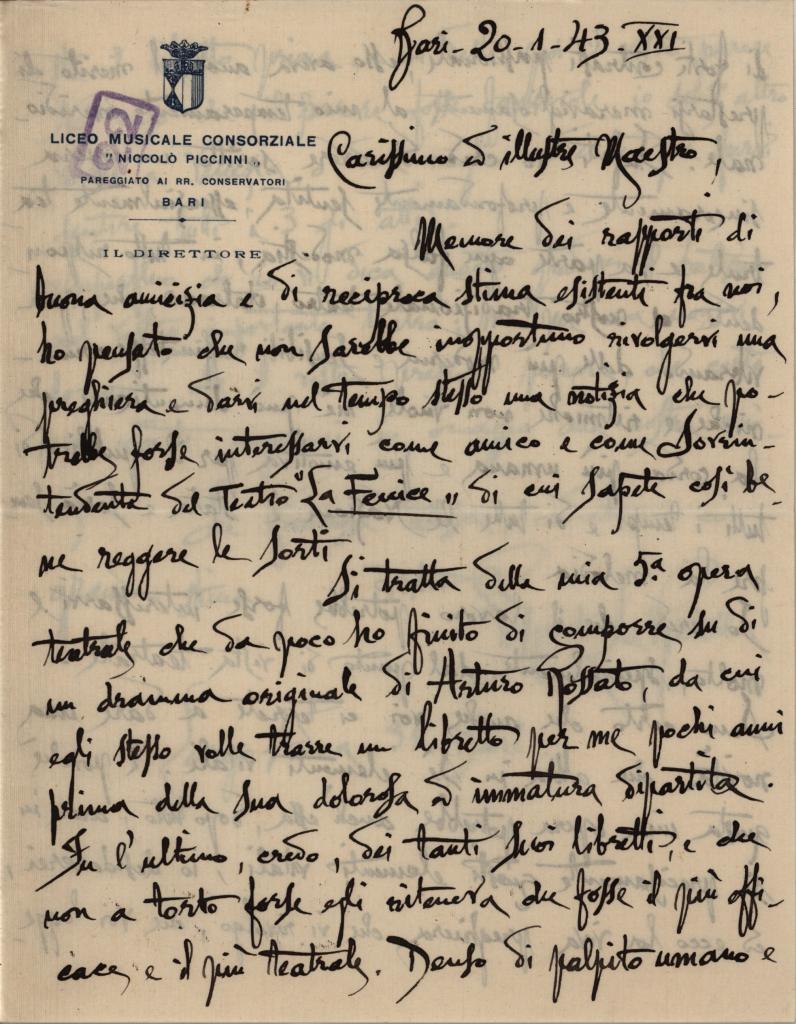 Bari - 20 - 1 - 43 - XXI
LICEO MUSICALE CONSORZIALE
"NICCOLÒ PICCINNI„
PAREGGIATO AI RR. CONSERVATORI
BARI
IL DIRETTORE
Carissimo ed illustre Maestro,
Memore dei rapporti di
buona amicizia e di reciproca stima esistenti fra noi,
ho pensato che non sarebbe inopportuno rivolgervi una
preghiera e darvi nel tempo stesso una notizia che po-
trebbe forse interessarvi come amico e come Sovrin-
tendente del Teatro "La Fenice„ di cui sapete così be-
ne reggere le sorti
Si tratta della mia 5ª opera
teatrale che da poco ho finito di comporre su di
un dramma originale di Arturo Rossato, da cui
egli stesso volle trarre un libretto per me pochi anni
prima della sua dolorosa ed immatura dipartita.
Fu l'ultimo, credo, dei tanti suoi libretti, e che
non a torto forse egli riteneva che fosse il più effi-
cace e il più teatrale. Denso di palpito umano e